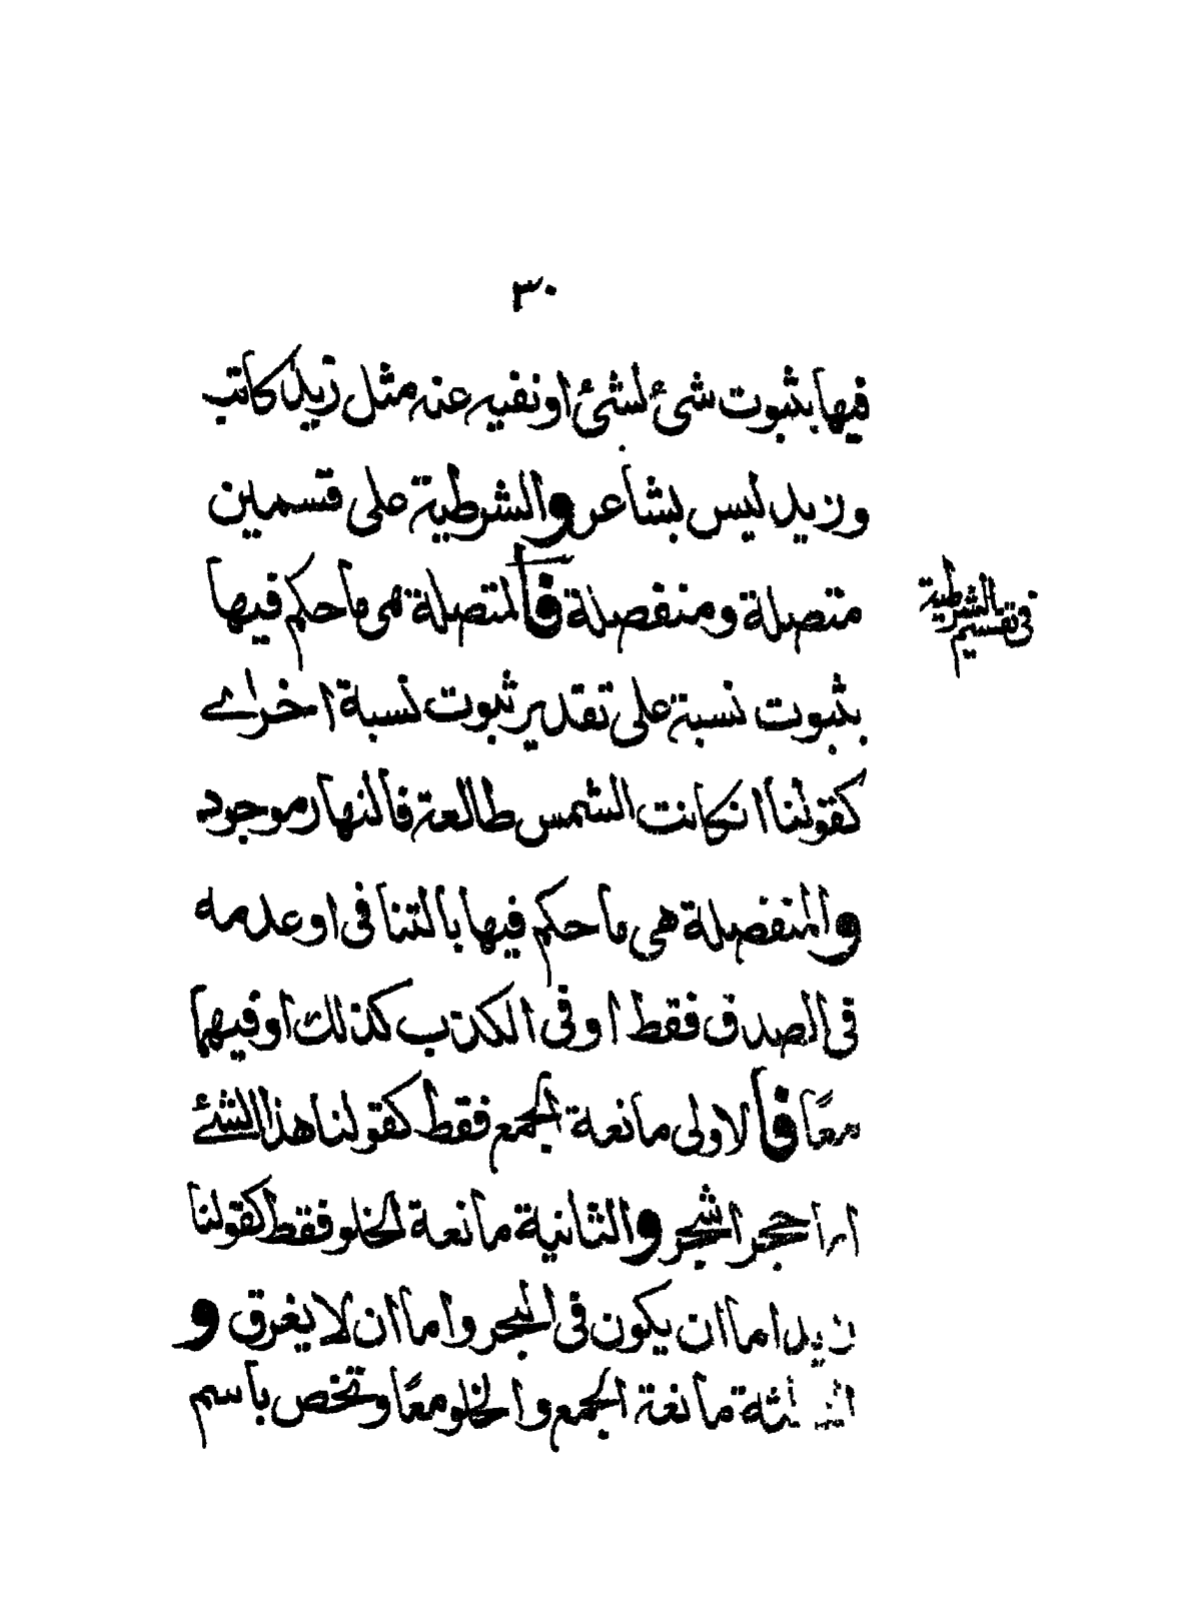 ٣٠
فيها بثبوت شئ لشئ او نفيه عنه مثل زيد كاتب
وزيد ليس بشاعر والشرطية على قسمين
متصلة ومنفصلة فالمتصلة هى ما حكم فيها
فى تقسيم الشرطية
بثبوت نسبة على تقدير ثبوت نسبة اخراے
كقولنا انكانت الشمس طالعة فالنهار موجود
والمنفصلة هى ما حكم فيها بالتنافى او عدمه
فى الصدق فقط او فى الكذب كذلك او فيهما
معًا فالاولى مانعة الجمع فقط كقولنا هذا الشئے
اما حجر اشجر والثانية مانعة الخلو فقط كقولنا
زيد اما ان يكون فى البحر واما ان لا يغرق و
مانعة الجمع والخلو معًا وتخص باسم